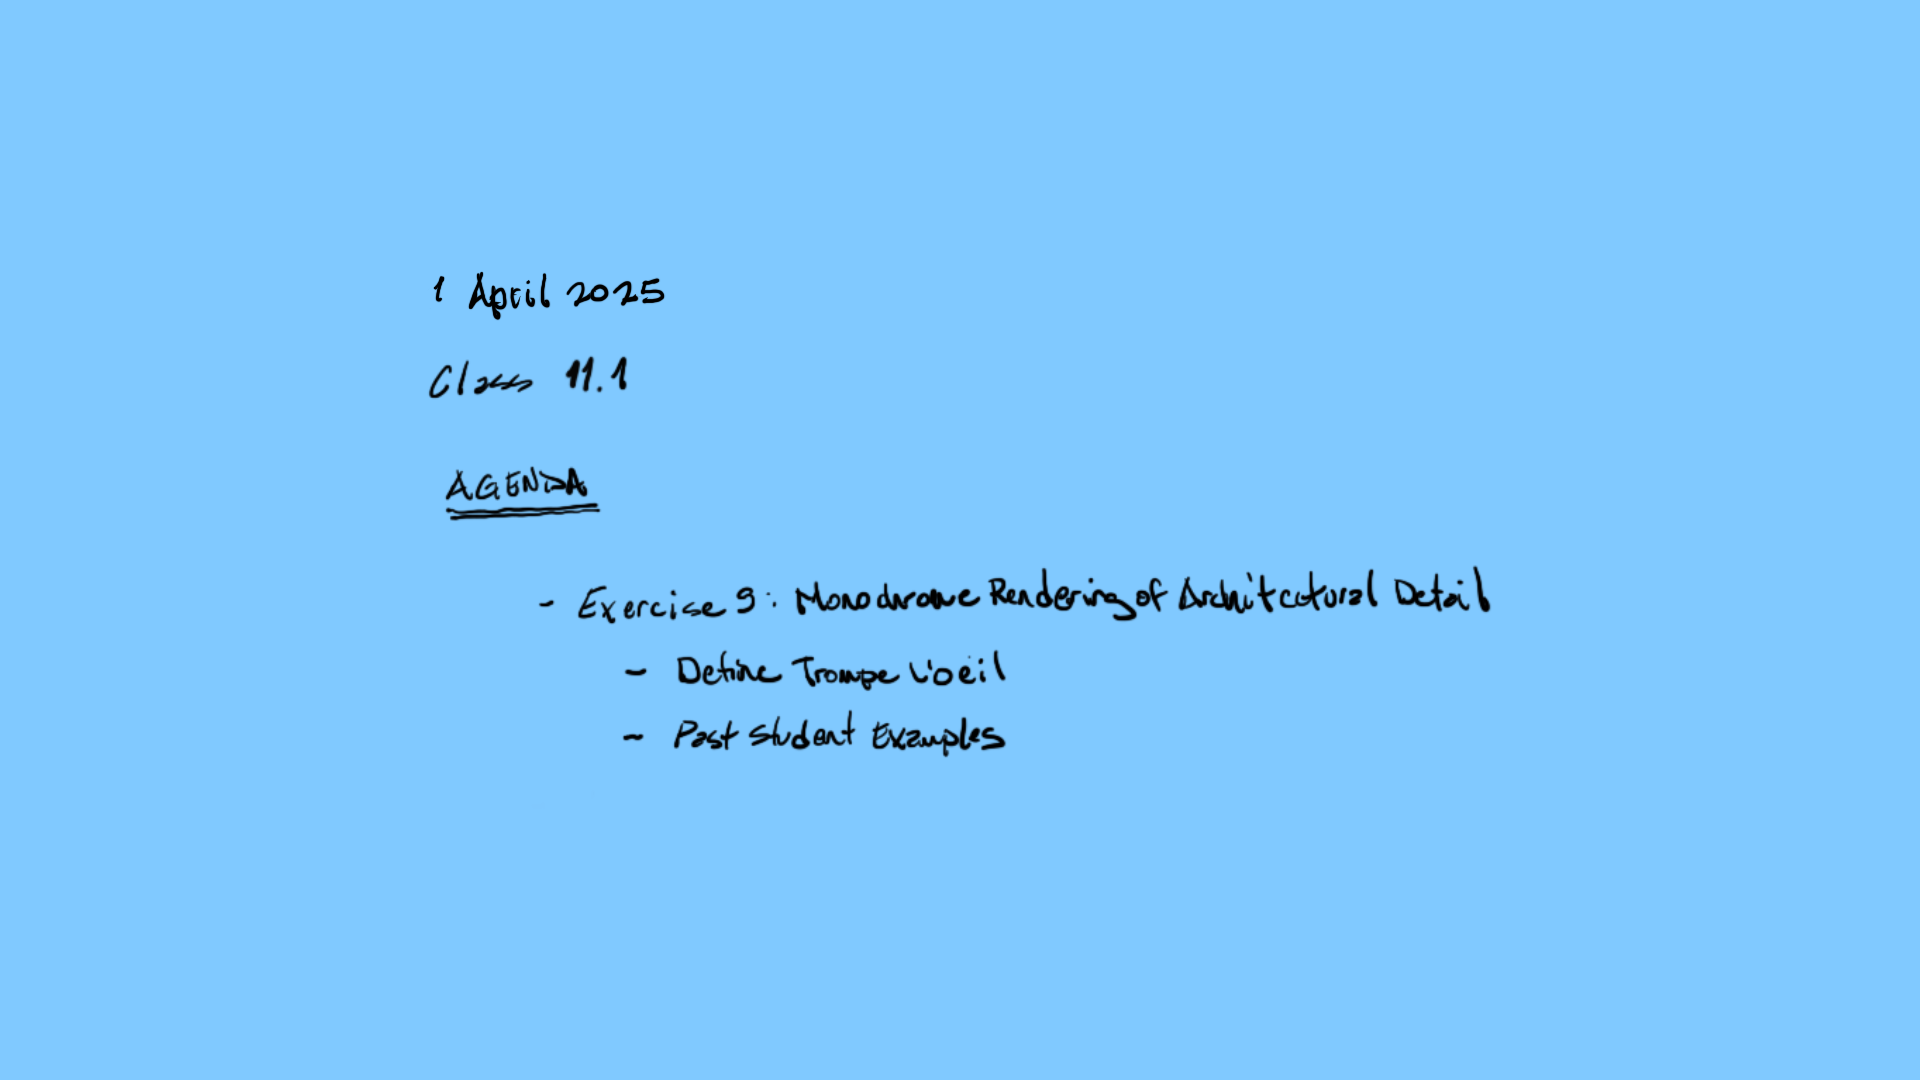 1 April 2025
Class 11.1
AGENDA
- Exercise 9: Monochrome Rendering of Architectural Detail
- Define Trompe L'oeil
- Past Student Examples